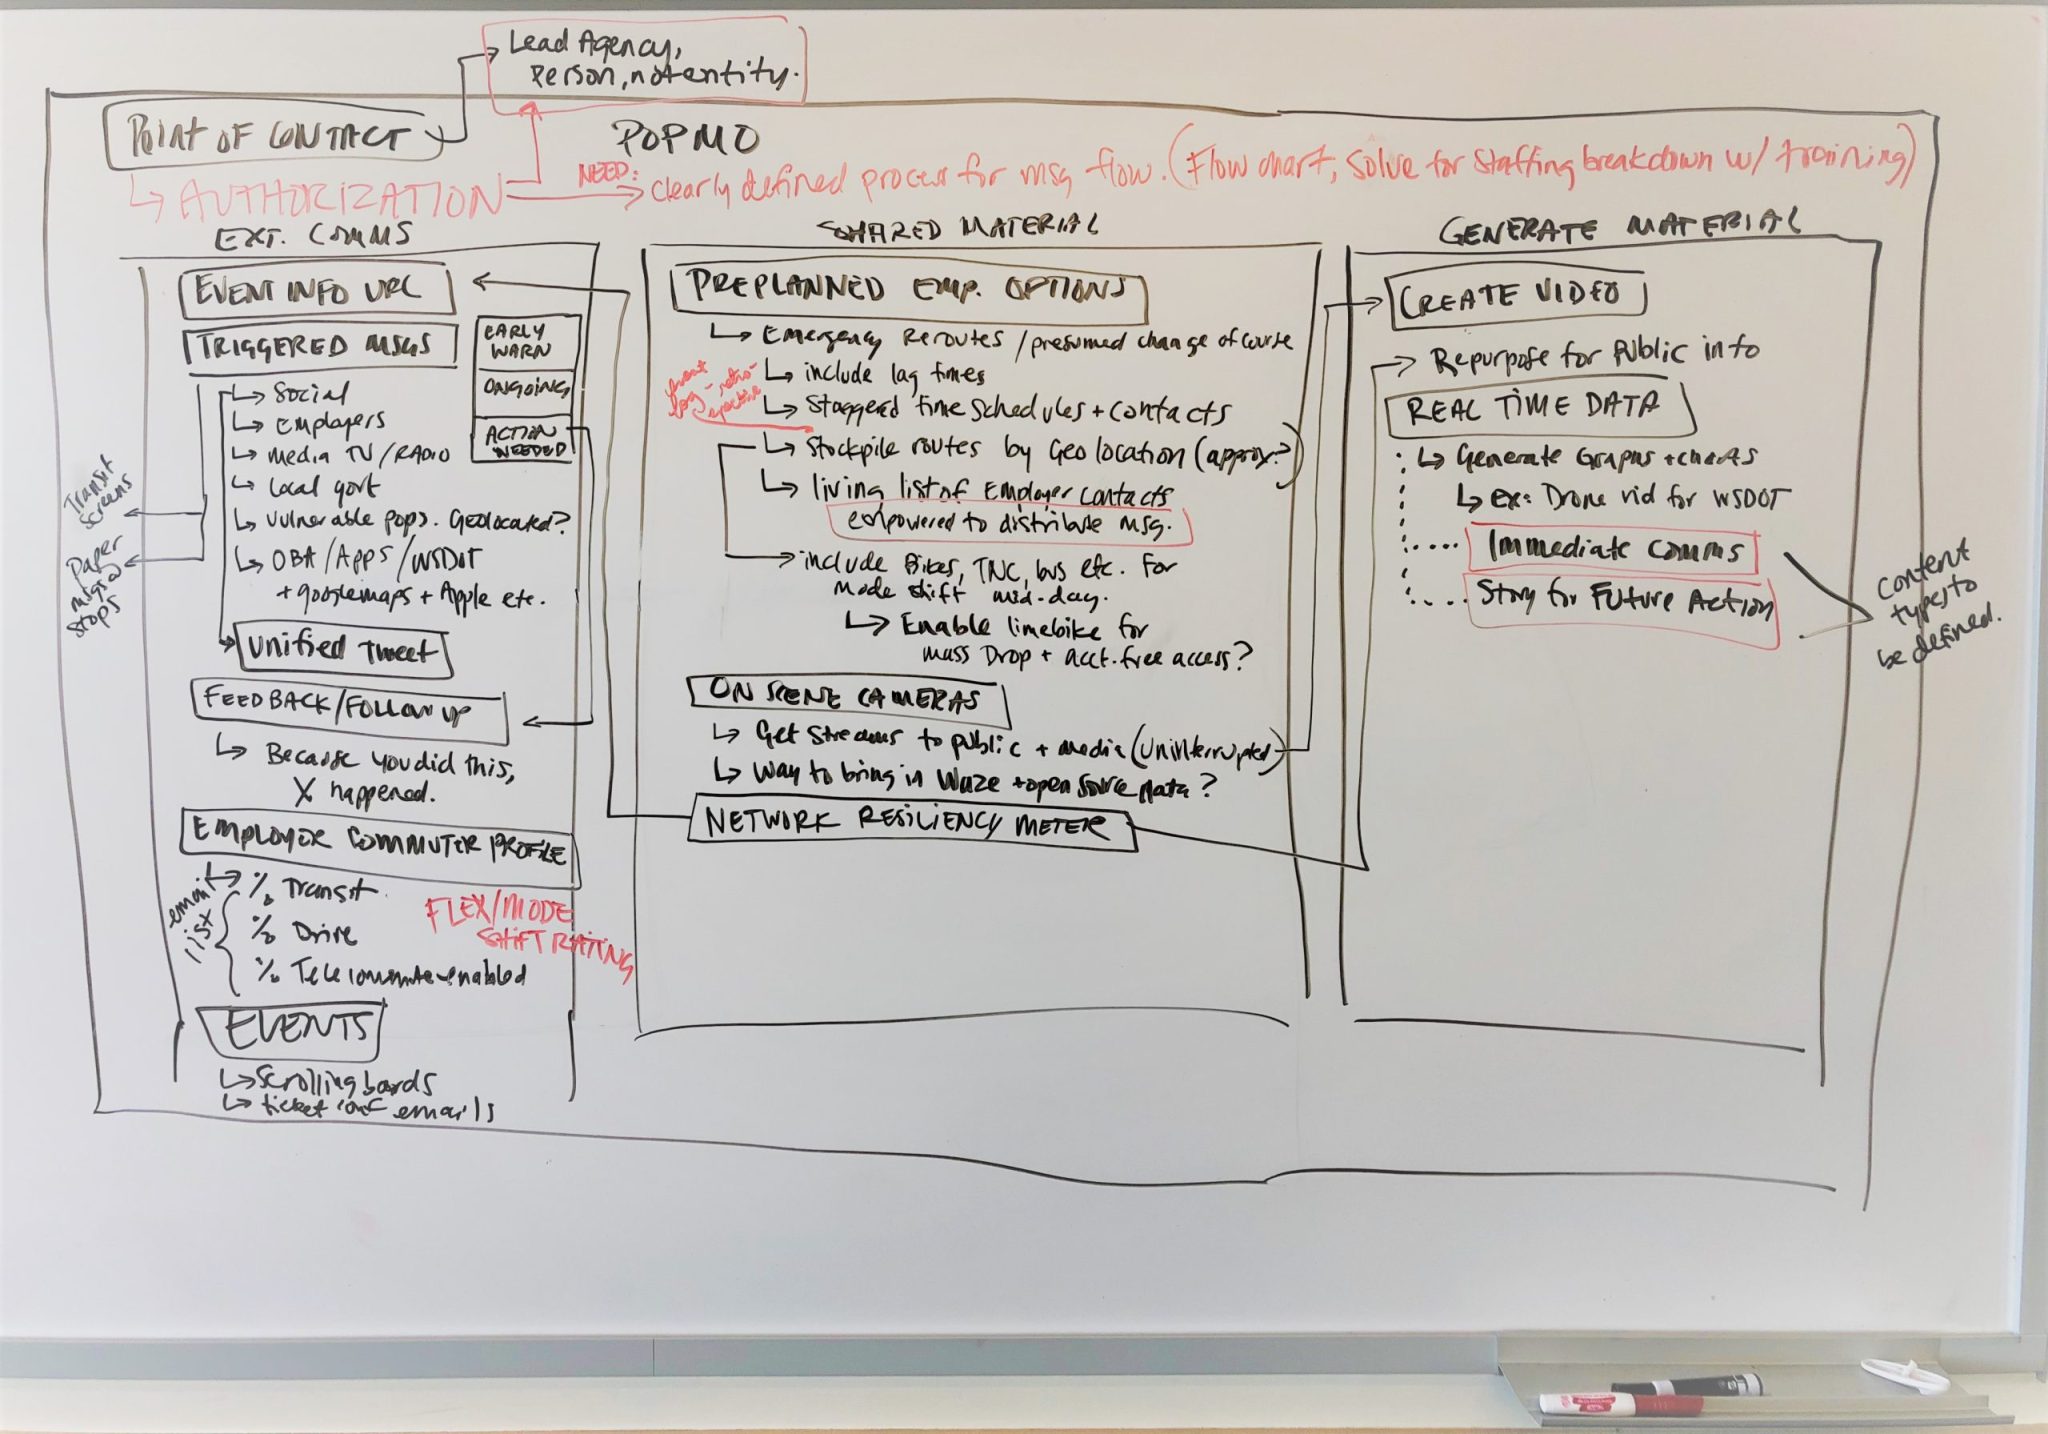 Lead Agency,
Person, not entity.
POINT OF CONTACT
POPMO
↳ AUTHORIZATION
NEED:
clearly defined process for msg flow. (Flow chart, Solve for staffing breakdown w/ training)
EXT. COMMS
EVENT INFO URL
TRIGGERED MSGS
EARLY
WARN
ONGOING
ACTION
NEEDED
↳ Social
↳ Employers
↳ Media TV/RADIO
↳ Local govt
↳ Vulnerable pops. Geolocated?
↳ OBA/Apps/WSDOT
+ googlemaps + Apple etc.
Transit
Screens
Paper
msgs @
stops
Unified Tweet
FEEDBACK/FOLLOWUP
↳ Because you did this,
X happened.
EMPLOYER COMMUTER PROFILE
email
list
% Transit
% Drive
% Telecommute-enabled
FLEX/MODE
SHIFT RATING
EVENTS
↳ Scrolling boards
↳ ticket conf emails
SHARED MATERIAL
PREPLANNED EMP. OPTIONS
↳ Emergency Reroutes/presumed change of course
↳ include lag times
event
log - retro-
spective
↳ Staggered time schedules + contacts
↳ Stockpile routes by Geolocation (approx?)
↳ living list of Employer contacts
empowered to distribute msg.
include Bikes, TNC, bus etc. For
Mode shift mid-day.
↳ Enable limebike for
mass Drop + acct.free access?
ON SCENE CAMERAS
↳ Get Streams to public + media (Uninterrupted)
↳ Way to bring in Waze + open source data?
NETWORK RESILIENCY METER
GENERATE MATERIAL
CREATE VIDEO
Repurpose for Public info
REAL TIME DATA
↳ Generate Graphs + charts
↳ ex: Drone vid for WSDOT
Immediate Comms
Story for Future Action
Content
types to
be defined.